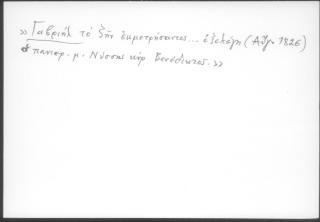 » Γαβριήλ τὸ ζῆν ἐκμετρήσαντος... ἐξελέγη (Αὔγ. 1826)
ὁ πανιερ. μ. Νύσσης κύρ Βενέδικτος. »